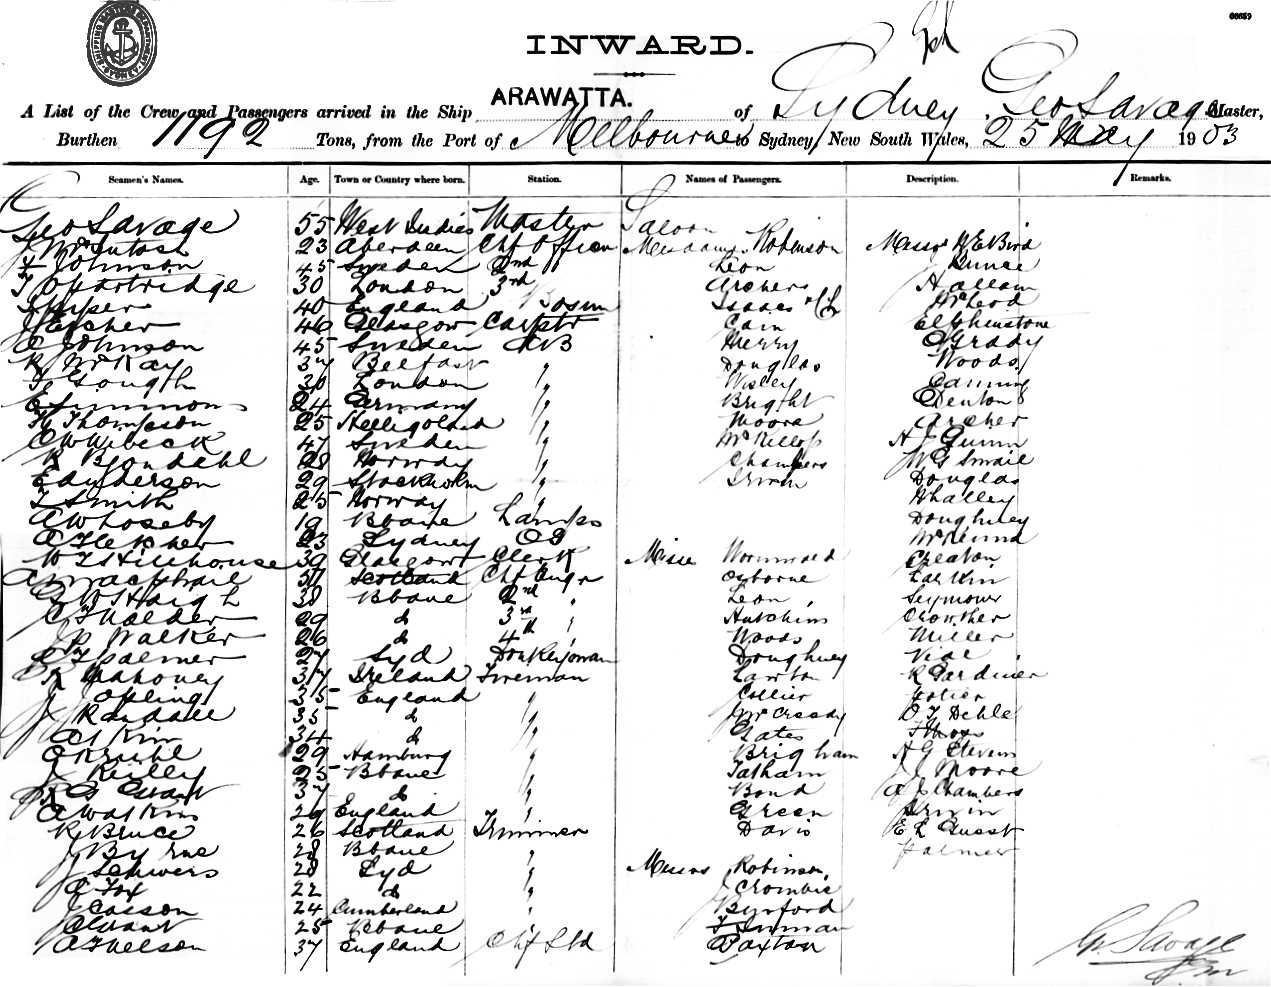 00089
SHIPPING MASTER'S DEPARTMENT SYDNEY
INWARD.
A List of the Crew and Passengers arrived in the Ship ARAWATTA. of Sydney, Geo Savage Master,
Burthen 1192 Tons, from the Port of Melbourne to Sydney, New South Wales, 25 May 1903
Seamen's Names. Age. Town or Country where born. Station. Names of Passengers. Description. Remarks.
Geo Savage 55 West Indies Master Saloon
J McIntosh 23 Aberdeen Chf Officer Mesdames Robinson Messrs W E Bird
Johnson 45 Sweden 2nd Leon Bunce
T Partridge 30 London 3rd Archers Hallam
Harper 40 England Bosun Isaacs McLeod
J Fletcher 46 Glasgow Carptr Cain Elphinstone
A Johnson 45 Sweden AB Merry O'Grady
R McKay 37 Belfast " Douglas Woods
Gough 30 London " Wisley Canning
24 Germany " Bright Denton
Thompson 25 Helligoland " Moore Archer
C W Wibeck 47 Sweden " McKillop A J Gunn
28 Norway " Chambers W G Smail
E Anderson 29 Stockholm " Irwin Douglas
T Smith 25 Norway " Whalley
A W Loseby 19 Bbane Lamps Doughney
A Fletcher 23 Sydney OS
W T Hillhouse 39 Glasgow Clerk Misses Wormald Cheaton
A Macphail 57 Scotland Chf Engr Osborne Larkin
G W Haigh 38 Bbane 2nd " Leon Seymour
C T Naelder 29 do 3rd " Hutchins Crowther
J P Walker 26 do 4th " Woods Miller
C T Palmer 27 Syd Donkeyman Doughney Vial
R Mahoney 37 Ireland Fireman Lawton R Gardiner
J Opling 35 England " Collier
J Randall 35 do " McCready O T Dehle
Atkin 34 do " Yates
C Kruhl 29 Hamburg " Brigham A G Stevens
J Reilly 25 Bbane " Tatham J J Moore
R G Grant 37 do " Bond A J Chambers
A Watkins 29 England " Green Irwin
R Bruce 26 Scotland Trimmer Davis E L Guest
J Byrne 28 Bbane " Palmer
J Schivers 28 Syd " Messrs Robinson,
C Fox 22 do " J Crombie
J Casson 24 Cumberland " Burford
C Grant 25 Bbane " T Inman
A T Nelson 37 England Chf Std Paxton
G. Savage